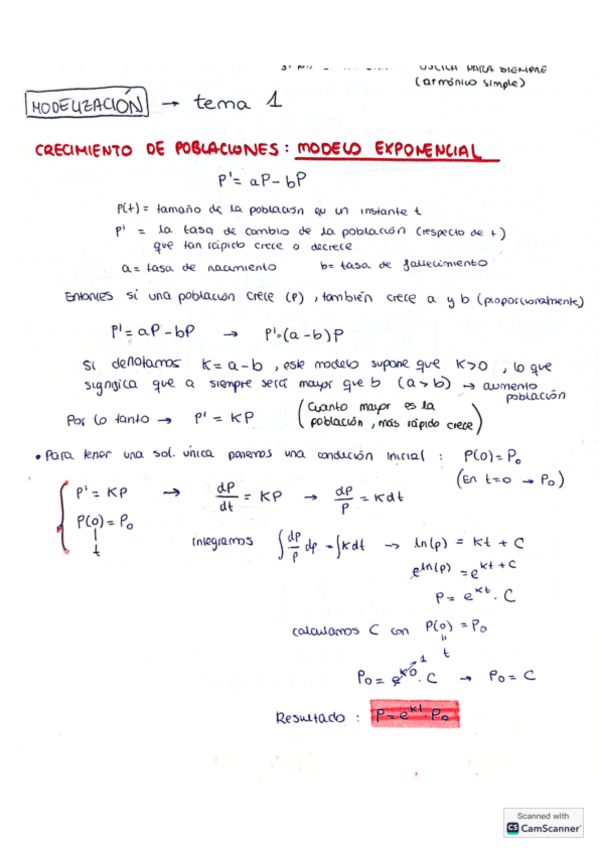 OSCILA PARA SIEMPRE
(armónico simple)
MODELIZACIÓN → tema 1
CRECIMIENTO DE POBLACIONES: MODELO EXPONENCIAL
P' = aP - bP
P(t) = tamaño de la población en un instante t
P' = la tasa de cambio de la población (respecto de t)
que tan rápido crece o decrece
a = tasa de nacimiento b = tasa de fallecimiento
Entonces si una población crece (P), también crece a y b (proporcionalmente)
P' = aP - bP → P' = (a - b)P
Si denotamos K = a - b, este modelo supone que K>0, lo que
significa que a siempre será mayor que b (a > b) → aumento
población
Por lo tanto → P' = KP (Cuanto mayor es la
población, más rápido crece)
• Para tener una sol. única ponemos una condición inicial : P(0) = P₀
(En t=0 → P₀)
{ P' = KP → dP/dt = KP → dP/P = K dt
P(0) = P₀
t
integramos ∫ dP/P dp = ∫ K dt → ln(p) = Kt + C
e^ln(p) = e^Kt + C
P = e^Kt · C
calculamos C con P(0) = P₀
"
t
P₀ = e^K0 · C → P₀ = C
1
Resultado : P = e^Kt · P₀
Scanned with
CS CamScanner